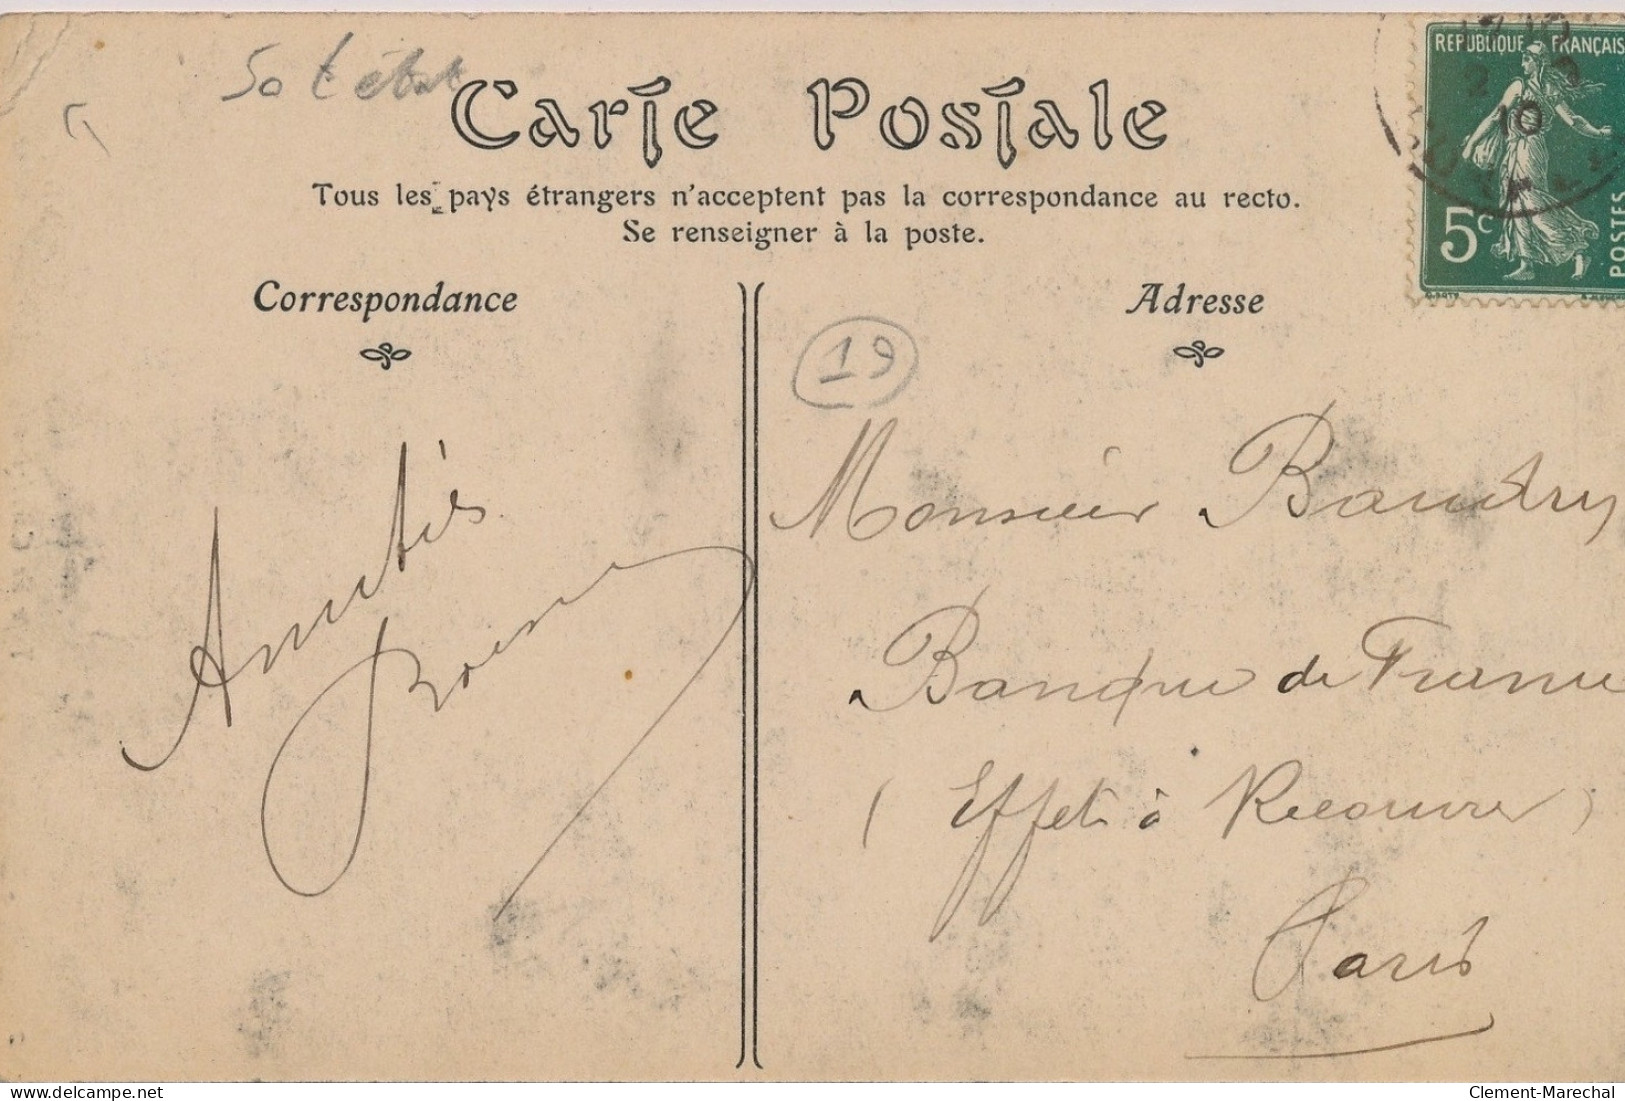 50 t état
Carte Postale
Tous les pays étrangers n'acceptent pas la correspondance au recto.
Se renseigner à la poste.
REPUBLIQUE FRANÇAIS
10
5c
POSTES
Correspondance
Adresse
19
Amitiés
Monsieur Baudry
Banque de France
(Effet à Recouvrer)
Paris
delcampe.net
Clement-Marechal